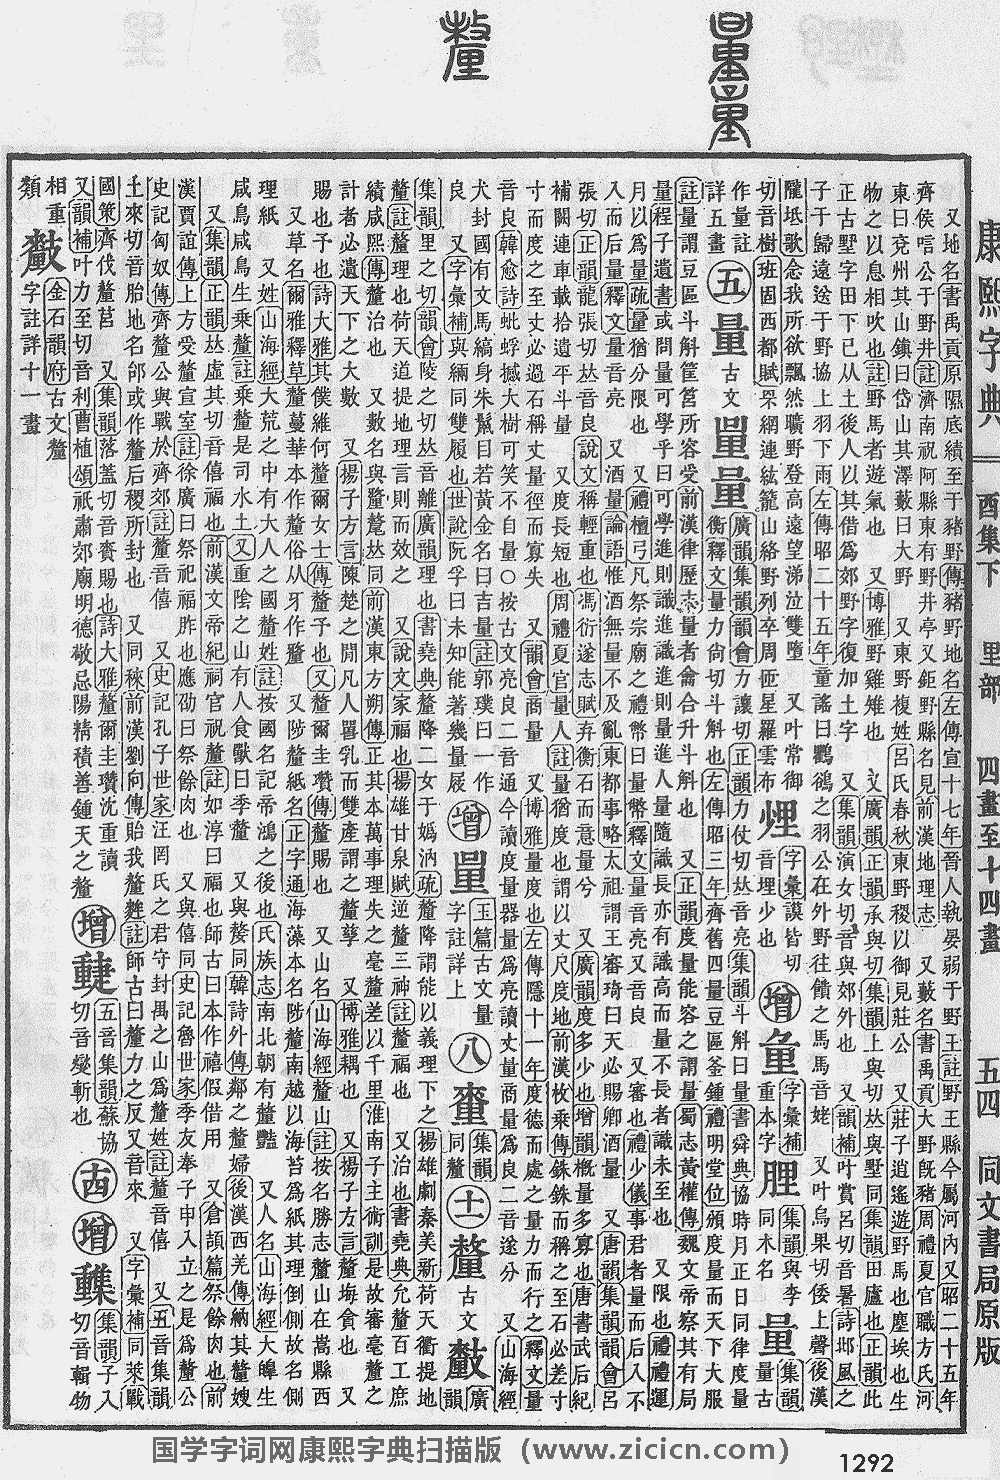 康熙字典 酉集下 里部 四畫至十四畫 五四 同文書局原版
又地名書禹貢原隰底績至于豬野傳豬野地名左傳宣十七年晉人執晏弱于野王註野王縣今屬河內又昭二十五年
齊侯唁公于野井註濟南祝阿縣東有野井亭又鉅野縣名見前漢地理志 又藪名書禹貢大野旣豬周禮夏官職方氏河
東曰兗州其山鎮曰岱山其澤藪曰大野 又東野複姓呂氏春秋東野稷以御見莊公 又莊子逍遙遊野馬也塵埃也生
物之以息相吹也註野馬者遊氣也 又博雅野雞雉也 又廣韻正韻承與切集韻上與切𠀤與墅同集韻田廬也正韻此
正古墅字田下已从土後人以其借爲郊野字復加土字 又集韻演女切音與郊外也 又韻補叶賞呂切音暑詩邶風之
子于歸遠送于野協上羽下雨左傳昭二十五年童謠曰鸜鵒之羽公在外野往饋之馬馬音姥 又叶烏果切倭上聲後漢
隴坻歌念我所欲飄然曠野登高遠望涕泣雙墮 又叶常御
切音樹班固西都賦罘網連紘籠山絡野列卒周匝星羅雲布
字彙謨皆切
音埋少也 增
字彙補
重本字
集韻與李
同木名 量 集韻
量古
作量註
詳五畫 五 量 古文 廣韻集韻韻會力讓切正韻力仗切𠀤音亮集韻斗斛曰量書舜典協時月正日同律度量
衡釋文量力尙切斗斛也左傳昭三年齊舊四量豆區釜鍾禮明堂位頒度量而天下大服
註量謂豆區斗斛筐筥所容受前漢律歷志量者龠合升斗斛也 又正韻度量能容之謂量蜀志黃權傳魏文帝察其有局
量程子遺書或問量可學乎曰可學進則識進識進則量進人量隨識長亦有識高而量不長者識未至也 又限也禮禮運
月以爲量疏量猶分限也 又禮檀弓凡祭宗廟之禮幣曰量幣釋文量音亮又音良 又審也禮少儀事君者量而后入不
入而后量釋文量音亮 又酒量論語惟酒無量不及亂東都事略太祖謂王審琦曰天必賜卿酒量 又唐韻集韻韻會呂
張切正韻龍張切𠀤音良說文稱輕重也馮衍遂志賦弃衡石而意量兮 又廣韻度多少也增韻槪量多寡也唐書武后紀
補闕連車載拾遺平斗量 又度長短也周禮夏官量人註量猶度也謂以丈尺度地前漢枚乗傳銖銖而稱之至石必差寸
寸而度之至丈必過石稱丈量徑而寡失 又韻會商量 又博雅量度也左傳隱十一年度德而處之量力而行之釋文量
音良韓愈詩蚍蜉撼大樹可笑不自量○按古文亮良二音通今讀度量器量爲亮讀丈量商量爲良二音遂分 又山海經
犬封國有文馬縞身朱鬣目若黃金名曰吉量註郭璞曰一作
良 又字彙補與緉同雙履也世說阮孚曰未知能著幾量屐
增 玉篇古文量
字註詳上 八 集韻
同釐 十一 釐 古文 廣
韻
集韻里之切韻會陵之切𠀤音離廣韻理也書堯典釐降二女于嬀汭疏釐降謂能以義理下之揚雄劇秦美新荷天衢提地
釐註釐理也荷天道提地理言則而效之 又說文家福也揚雄甘泉賦逆釐三神註釐福也 又治也書堯典允釐百工庶
績咸熙傳釐治也 又數名與氂釐𠀤同前漢東方朔傳正其本萬事理失之毫釐差以千里淮南子主術訓是故審毫釐之
計者必遺天下之大數 又揚子方言陳楚之閒凡人嘼乳而雙產謂之釐孳 又博雅耦也 又揚子方言釐挴貪也 又
賜也予也詩大雅其僕維何釐爾女士傳釐予也又釐爾圭瓚傳釐賜也 又山名山海經釐山註按名勝志釐山在嵩縣西
又草名爾雅釋草釐蔓華本作釐俗从牙作 又陟釐紙名正字通海藻本名陟釐南越以海苔爲紙其理倒側故名側
理紙 又姓山海經大荒之中有大人之國釐姓註按國名記帝鴻之後也氏族志南北朝有釐豔 又人名山海經大皥生
咸鳥咸鳥生乗釐註乗釐是司水土又重陰之山有人食獸曰季釐 又與嫠同韓詩外傳鄰之釐婦後漢西羌傳納其釐嫂
又集韻正韻𠀤虛其切音僖福也前漢文帝紀祠官祝釐註如淳曰福也師古曰本作禧假借用 又倉頡篇祭餘肉也前
漢賈誼傳上方受釐宣室註徐廣曰祭祀福胙也應劭曰祭餘肉也 又與僖同史記魯世家季友奉子申入立之是爲釐公
史記匈奴傳齊釐公與戰於齊郊註釐音僖 又史記孔子世家汪罔氏之君守封禺之山爲釐姓註釐音僖 又五音集韻
土來切音胎地名邰或作釐后稷所封也 又同秾前漢劉向傳貽我釐麰註師古曰釐力之反又音來 又字彙補同萊戰
國策齊伐釐莒 又集韻落蓋切音賚賜也詩大雅釐爾圭瓚沈重讀
又韻補叶力至切音利曹植頌祇肅郊廟明德敬忌陽精積善鍾天之釐
增 五音集韻蘇協
切音燮斬也 十四 增 集韻子入
切音輯物
相重
類 金石韻府古文釐
字註詳十一畫
国学字词网康熙字典扫描版（www.zicicn.com）
1292